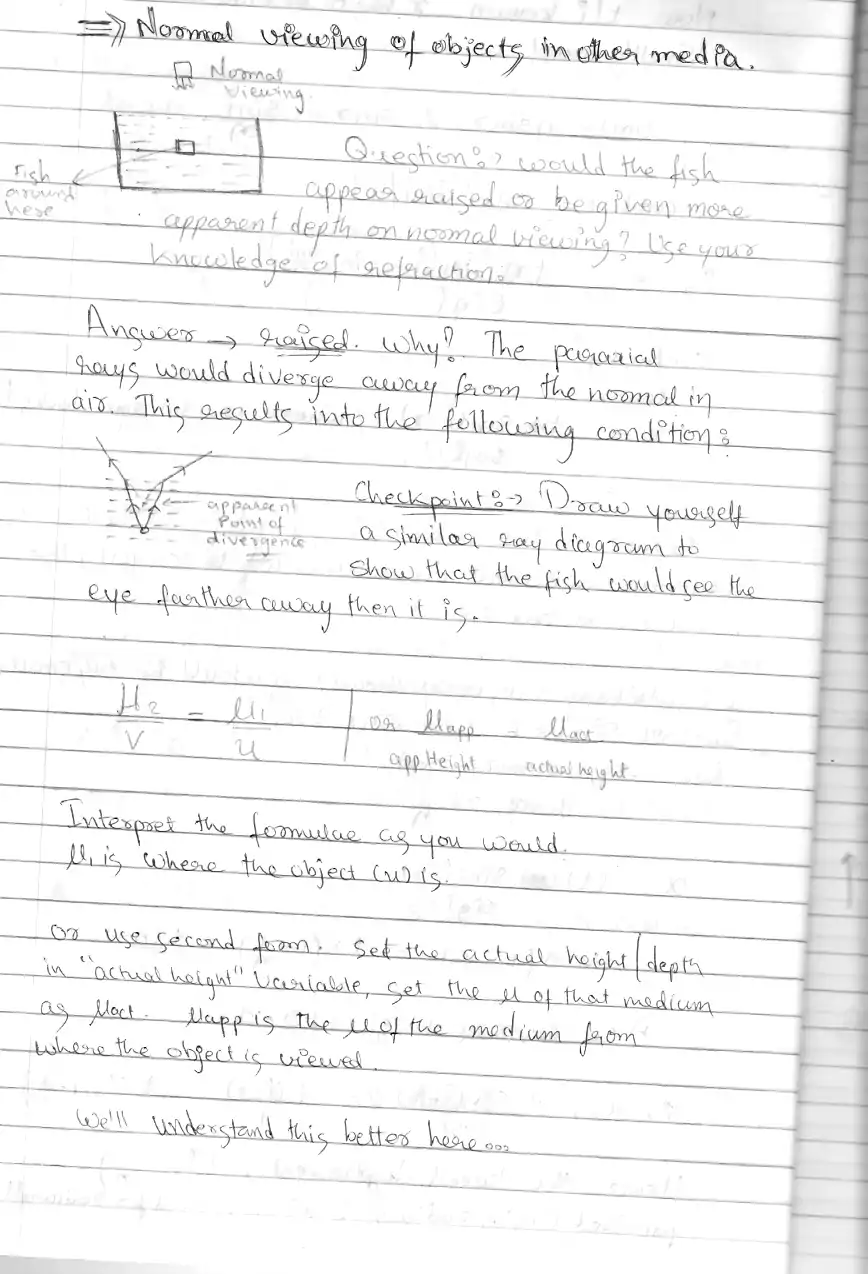 => Normal viewing of objects in other media.
Normal
viewing.
Fish
around
here
Question:→ would the fish
appear raised or be given more
apparent depth on normal viewing? Use your
knowledge of refraction.
Answer → raised. Why? The paraxial
rays would diverge away from the normal in
air. This results into the following condition:
apparent
Point of
divergence
Checkpoint:→ Draw yourself
a similar ray diagram to
show that the fish would see the
eye farther away then it is.
μ2/V = μ1/u | or μapp/app. Height = μact/actual height.
Interpret the formulae as you would.
μ1 is where the object (u) is.
Or use second form. Set the actual height/depth
in "actual height" Variable, set the μ of that medium
as μact. μapp is the μ of the medium from
where the object is viewed.
We'll understand this better here...